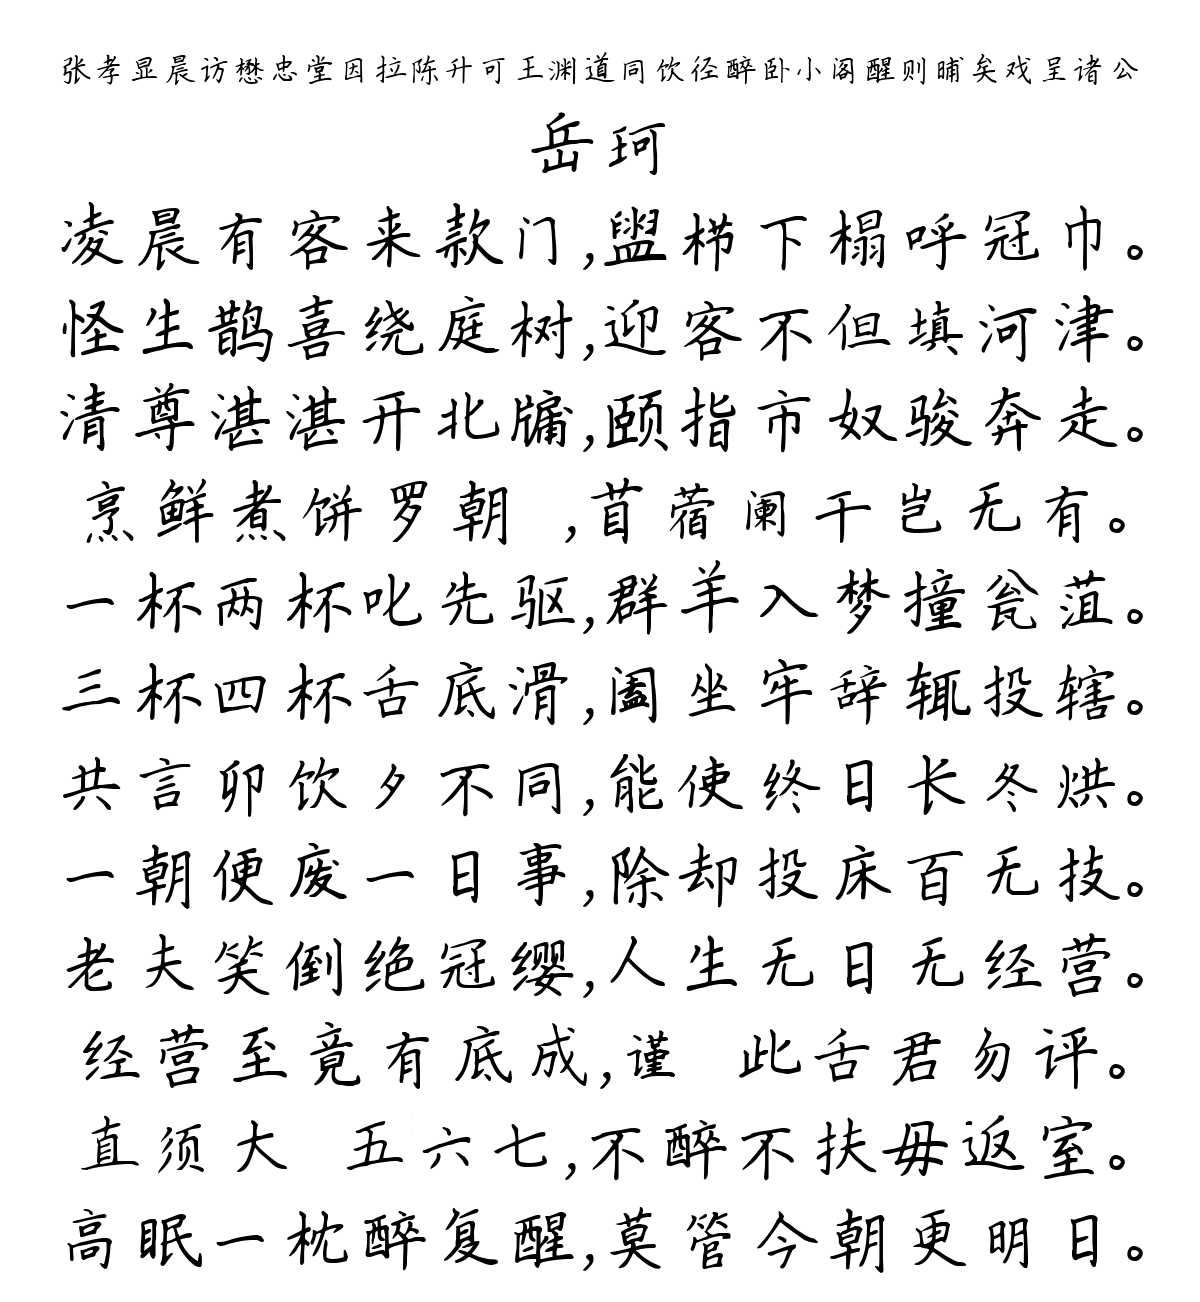 张孝显晨访懋忠堂因拉陈升可王渊道同饮径醉卧小阁醒则晡矣戏呈诸公
岳珂
凌晨有客来款门,盥栉下榻呼冠巾。
怪生鹊喜绕庭树,迎客不但填河津。
清尊湛湛开北牖,颐指市奴骏奔走。
烹鲜煮饼罗朝 ,苜蓿阑干岂无有。
一杯两杯叱先驱,群羊入梦撞瓮菹。
三杯四杯舌底滑,阖坐牢辞辄投辖。
共言卯饮夕不同,能使终日长冬烘。
一朝便废一日事,除却投床百无技。
老夫笑倒绝冠缨,人生无日无经营。
经营至竟有底成,谨 此舌君勿评。
直须大 五六七,不醉不扶毋返室。
高眠一枕醉复醒,莫管今朝更明日。